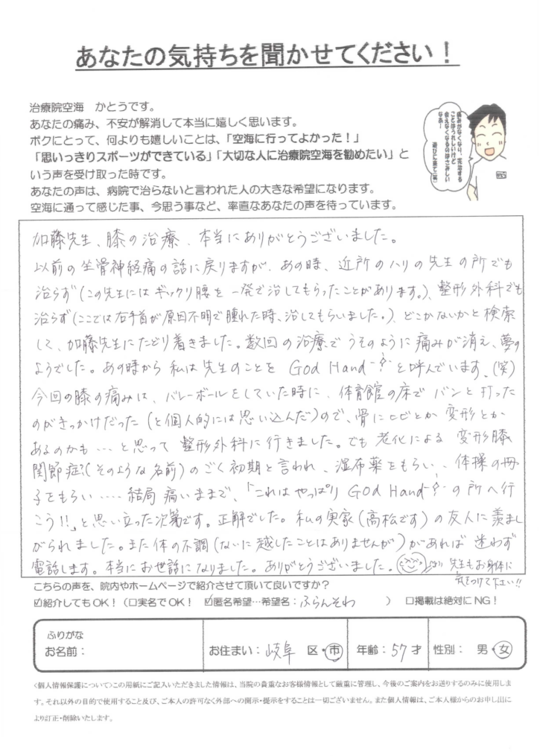 あなたの気持ちを聞かせてください！
治療院空海　かとうです。
あなたの痛み、不安が解消して本当に嬉しく思います。
ボクにとって、何よりも嬉しいことは、「空海に行ってよかった！」
「思いっきりスポーツができている」「大切な人に治療院空海を勧めたい」と
いう声を受け取った時です。
あなたの声は、病院で治らないと言われた人の大きな希望になります。
空海に通って感じた事、今思う事など、率直なあなたの声を待っています。
加藤先生、膝の治療、本当にありがとうございました。
以前の坐骨神経痛の話に戻りますが、あの時、近所のハリの先生の所でも
治らず(この先生にはギックリ腰を一発で治してもらったことがあります。)、整形外科でも
治らず(ここでは右手首が原因不明で腫れた時、治してもらいました。)、どこかないかと検索
して、加藤先生にたどり着きました。数回の治療でうそのように痛みが消え、夢の
ようでした。あの時から私は先生のことを God Hand と呼んでいます。(笑)
今回の膝の痛みは、バレーボールをしていた時に、体育館の床でバンと打った
のがきっかけだった(と個人的には思い込んだ)ので、骨にヒビとか変形とか
あるのかも…と思って整形外科に行きました。でも老化による変形膝
関節症?(そのような名前)のごく初期と言われ、湿布薬をもらい、体操の冊
子をもらい……結局痛いままで、「これはやっぱり God Hand の所へ行
こう!!」と思い立った次第です。正解でした。私の実家(高松です)の友人に羨まし
がられました。また体の不調(ないに越したことはありませんが)があれば迷わず
電話します。本当にお世話になりました。ありがとうございました。先生もお身体に
気をつけて下さい!!
こちらの声を、院内やホームページで紹介させて頂いて良いですか？
☑紹介してもOK！（□実名でOK！　☑匿名希望…希望名：ふらんそわ　）　□掲載は絶対にNG！
ふりがな
お名前：
お住まい：岐阜　区・市
年齢：57才
性別：　男・女
〈個人情報保護について〉この用紙にご記入いただきました情報は、当院の貴重なお客様情報として厳重に管理し、今後のご案内をお送りするのみに使用しま
す。それ以外の目的で使用すること及び、ご本人の許可なく外部への開示・提示をすることは一切ございません。また個人情報は、ご本人様からのお申し出に
より訂正・削除いたします。